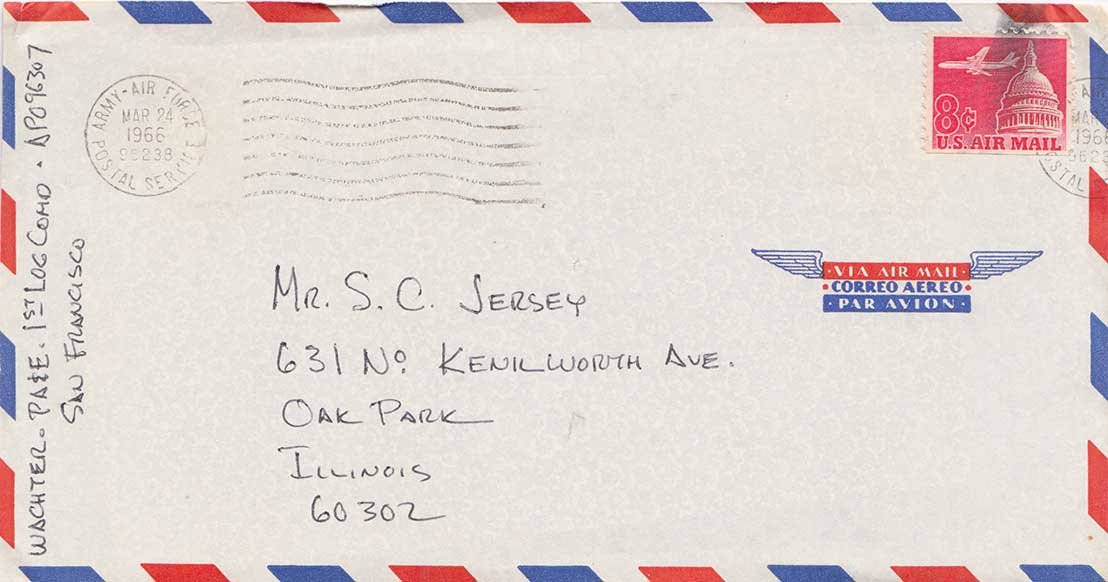 WACHTER. PA&E. 1ST LOG COMD. APO 96307
SAN FRANCISCO
ARMY-AIR FORCE
MAR 24
1966
96238
POSTAL SERVICE
8¢
U.S. AIR MAIL
AIR
MAR
1966
9623
STAL
VIA AIR MAIL
CORREO AEREO
PAR AVION
MR. S. C. JERSEY
631 No. KENILWORTH AVE.
OAK PARK
ILLINOIS
60302